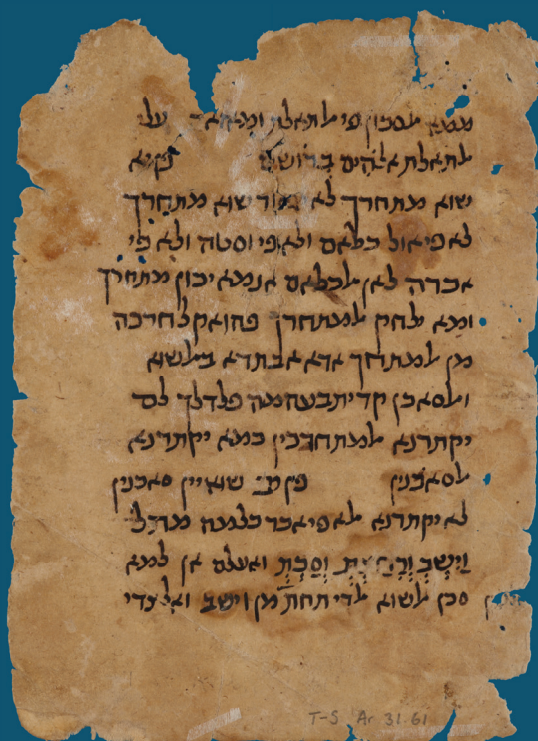 ממא אלסכון פי אלתאלת ומא עלי
אלתאלת אלהים
שוא מתחרך לא שוא מתחרך
לא פי אול כלאם ולא פי וסטה ולא פי
אכרה לאן אלכלאם אנמא יכון מתחרך
ומא אלחק אלמתחרך פהו אקל חרכה
מן אלמתחרך אדא אבתדא באלשוא
ואלסאכן קד יתבעהמא פלדלך לם
יקתרנא אלמתחרכין כמא יקתרנא
אלסאכנין שואיין סאכנין
לא יקתרנא אלא פי אכר כלמה
וַיִּשְׁבְּ וְרָחַצְתְּ וְסַכְתְּ ואעלם אן למא
סכן אלשוא אלדי תחת מן וישב
T-S Ar 31.61